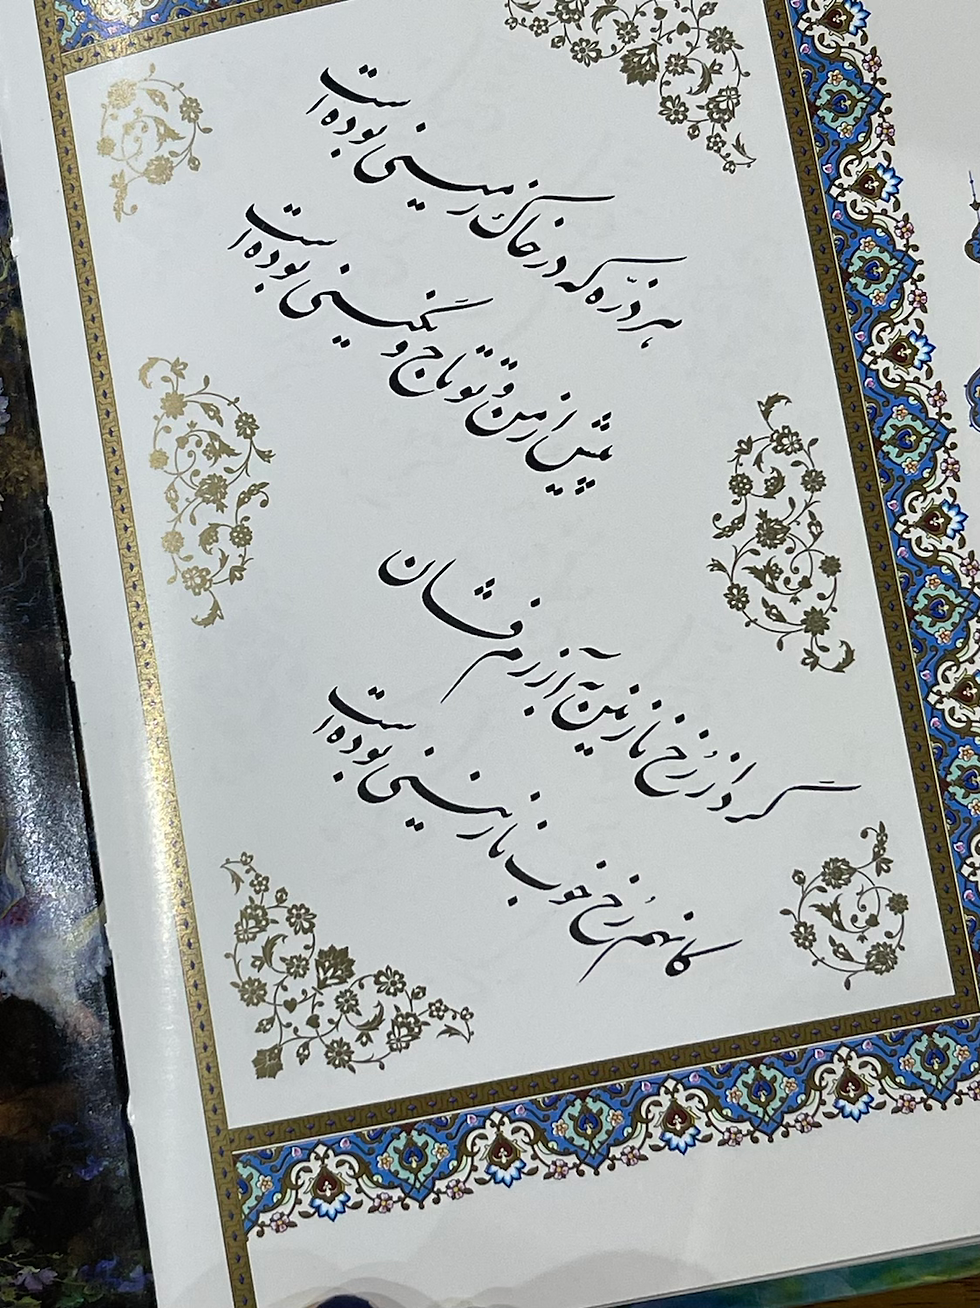 هر ذرّه که در خاک زمینی بوده است
پیش از من و تو تاج و نگینی بوده است
گرد از رُخ نازنین به آزرم فشان
کانهم رُخ خوب نازنینی بوده است